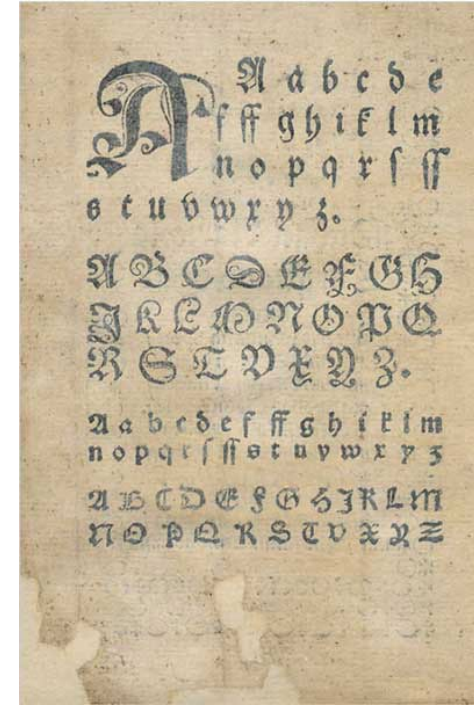 A A a b c d e
f ff g h i k l m
n o p q r ſ ſſ
s t u v w x y z.
A B C D E F G H
J K L M N O P Q
R S T V X Y Z.
A a b c d e f ff g h i k l m
n o p q r ſ ſſ s t u v w x y z
A B C D E F G H J K L M
N O P Q R S T V X Y Z